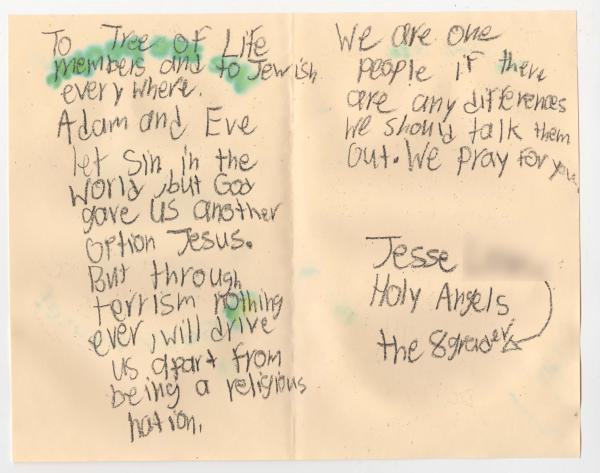 To Tree of Life
members and to Jewish
everywhere.
Adam and Eve
let Sin in the
World, but God
gave us another
option Jesus.
But through
terrism nothing
ever, will drive
us apart from
being a religious
nation.
We are one
people if there
are any differences
we should talk them
out. We pray for you.
Jesse
Holy Angels
the 8grader